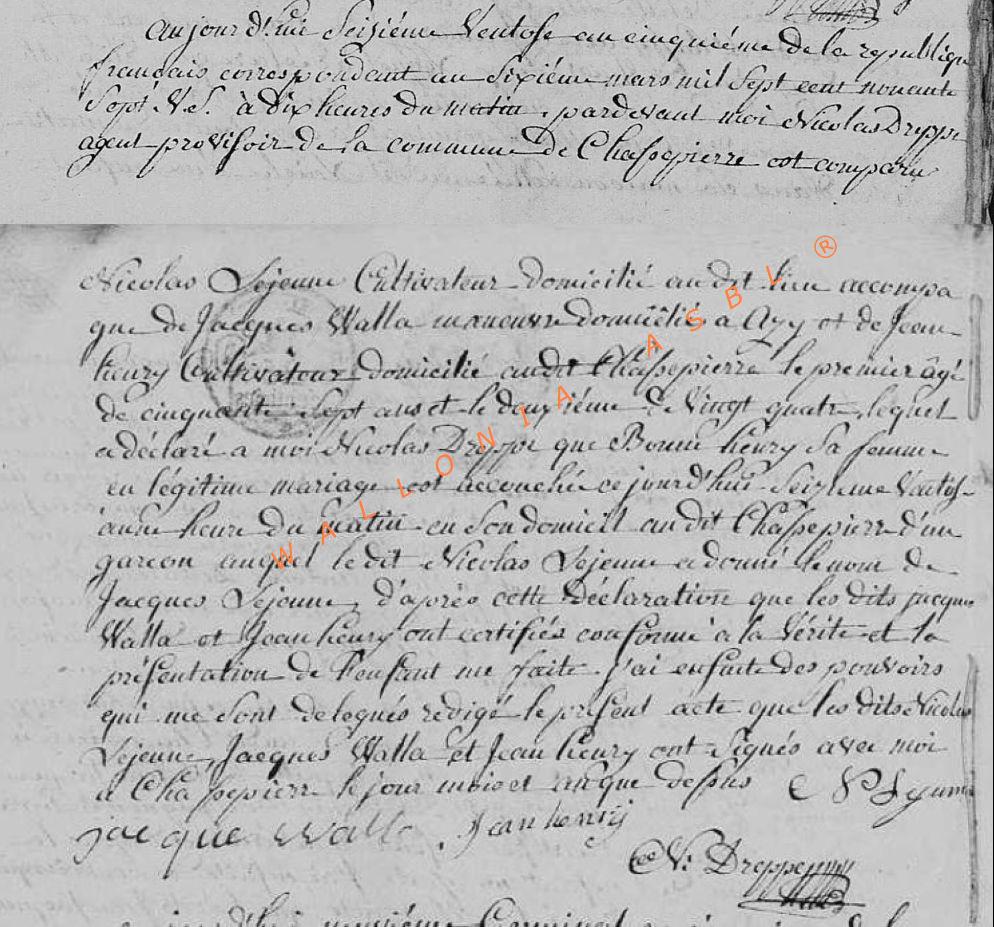 aujour d'hui Seiziéme Ventose an cinquiéme de la republique
français correspondant au Sixiéme mars mil Sept cent nonante
Sept V.S. à dix heures du matin, pardevant moi Nicolas Dreppe
agent provisoir de la commune de Chassepierre est comparu
Nicolas Lejeune Cultivateur domicilié au dit lieu accompa
gné de Jacques Walla manœuvre domicilié a Azy et de Jean
henry Cultivateur domicilié au dit Chassepierre le premier âgé
de cinquante Sept ans et le deuxiéme de Vingt quatre, lequel
a déclaré a moi Nicolas Dreppe que Bonne henry Sa femme
en légitime mariage est accouchée ce jourd'hui Seizieme Ventos
à une heure du matin en Son domicil au dit Chassepierre d'un
garcon auquel le dit Nicolas Lejeune a donné le nom de
Jacques Lejeune, d'après cette déclaration que les dits jacques
Walla et Jean henry ont certifiés conforme a la Vérité et la
présentation de l'enfant me faite. j'ai ensuite des pouvoirs
qui me Sont delegués redigé le présent acte que les dits Nicolas
Lejeune, Jacques Walla et Jean henry ont Signés avec moi
a Chassepierre le jour mois et an que dessus
jacque Walla. Jean henry
N. Dreppe
WALLONIA ASBL ®